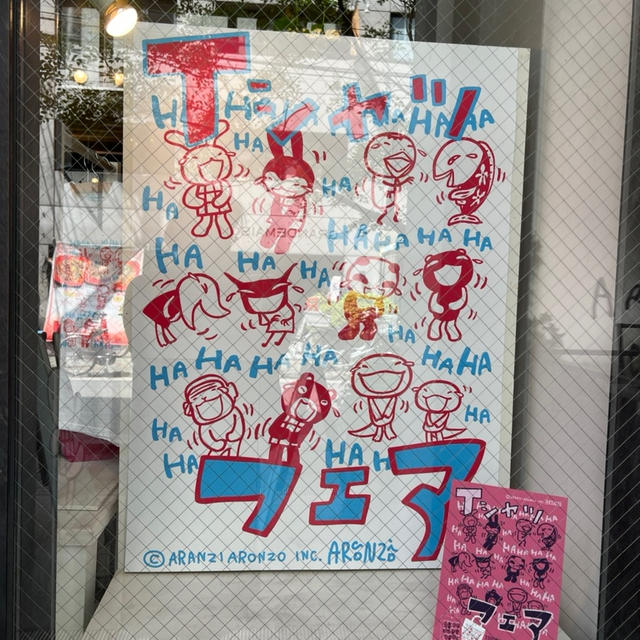 Tシャツ
HA HA HA HA HA
HA
HA HA
HA HA HA HA
HA HA HA
HA
HA HA HA HA HA HA
HA HA
HA HA H
フェア
© ARANZI ARONZO INC. ARONZO
Tシャツ
HA HA HA
HA HA
フェア